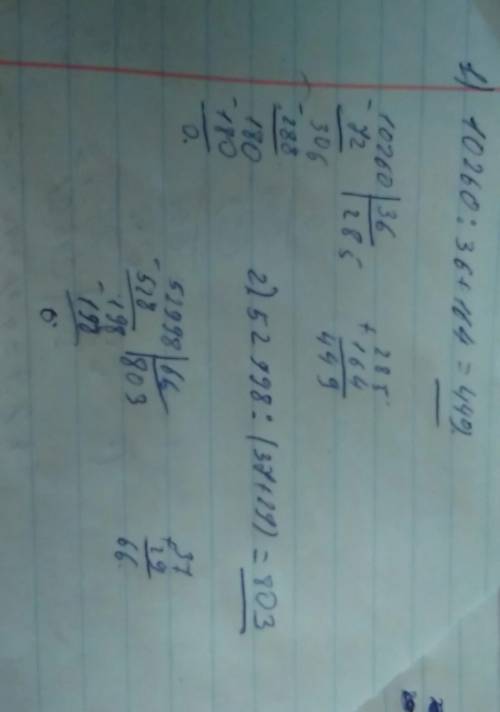 1) 10260 : 36 + 164 = 449
10260 | 36
- 72 | 285
306
- 288
180
- 180
0
285
+ 164
449
2) 52 998 : (37+29) = 803
52998 | 66
- 528 | 803
198
- 198
0
37
+ 29
66